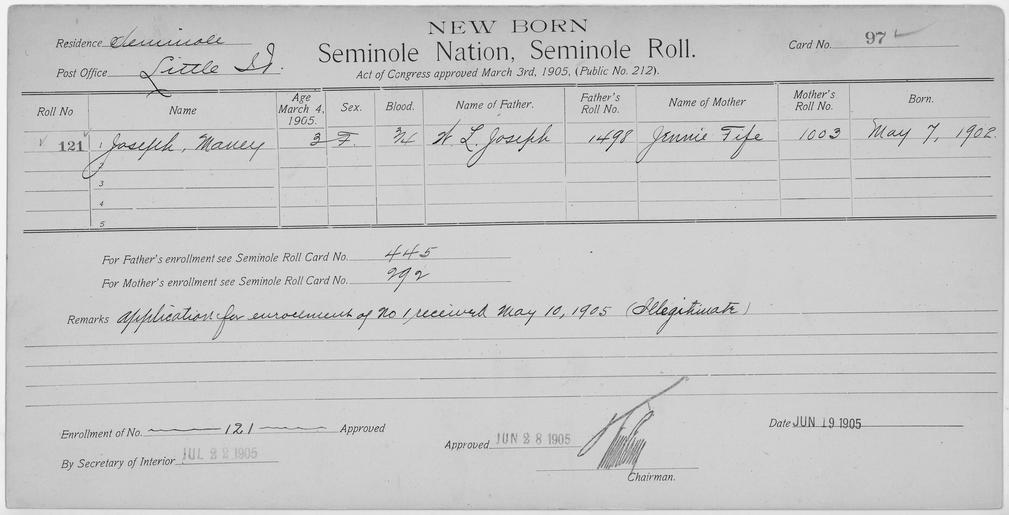 NEW BORN
Residence Seminole
Seminole Nation, Seminole Roll.
Card No. 97
Post Office Little I.T.
Act of Congress approved March 3rd, 1905, (Public No. 212).
Roll No Name Age March 4, 1905. Sex. Blood. Name of Father. Father's Roll No. Name of Mother Mother's Roll No. Born.
121 1 Joseph, Maney 3 F. 3/4 W. L. Joseph 1498 Jennie Fife 1003 May 7, 1902.
2
3
4
5
For Father's enrollment see Seminole Roll Card No. 445
For Mother's enrollment see Seminole Roll Card No. 292
Remarks Application for enrollment of No 1, received May 10, 1905 (Illegitimate)
Enrollment of No. 121 Approved
By Secretary of Interior JUL 22 1905
Approved JUN 28 1905
Chairman.
Date JUN 19 1905